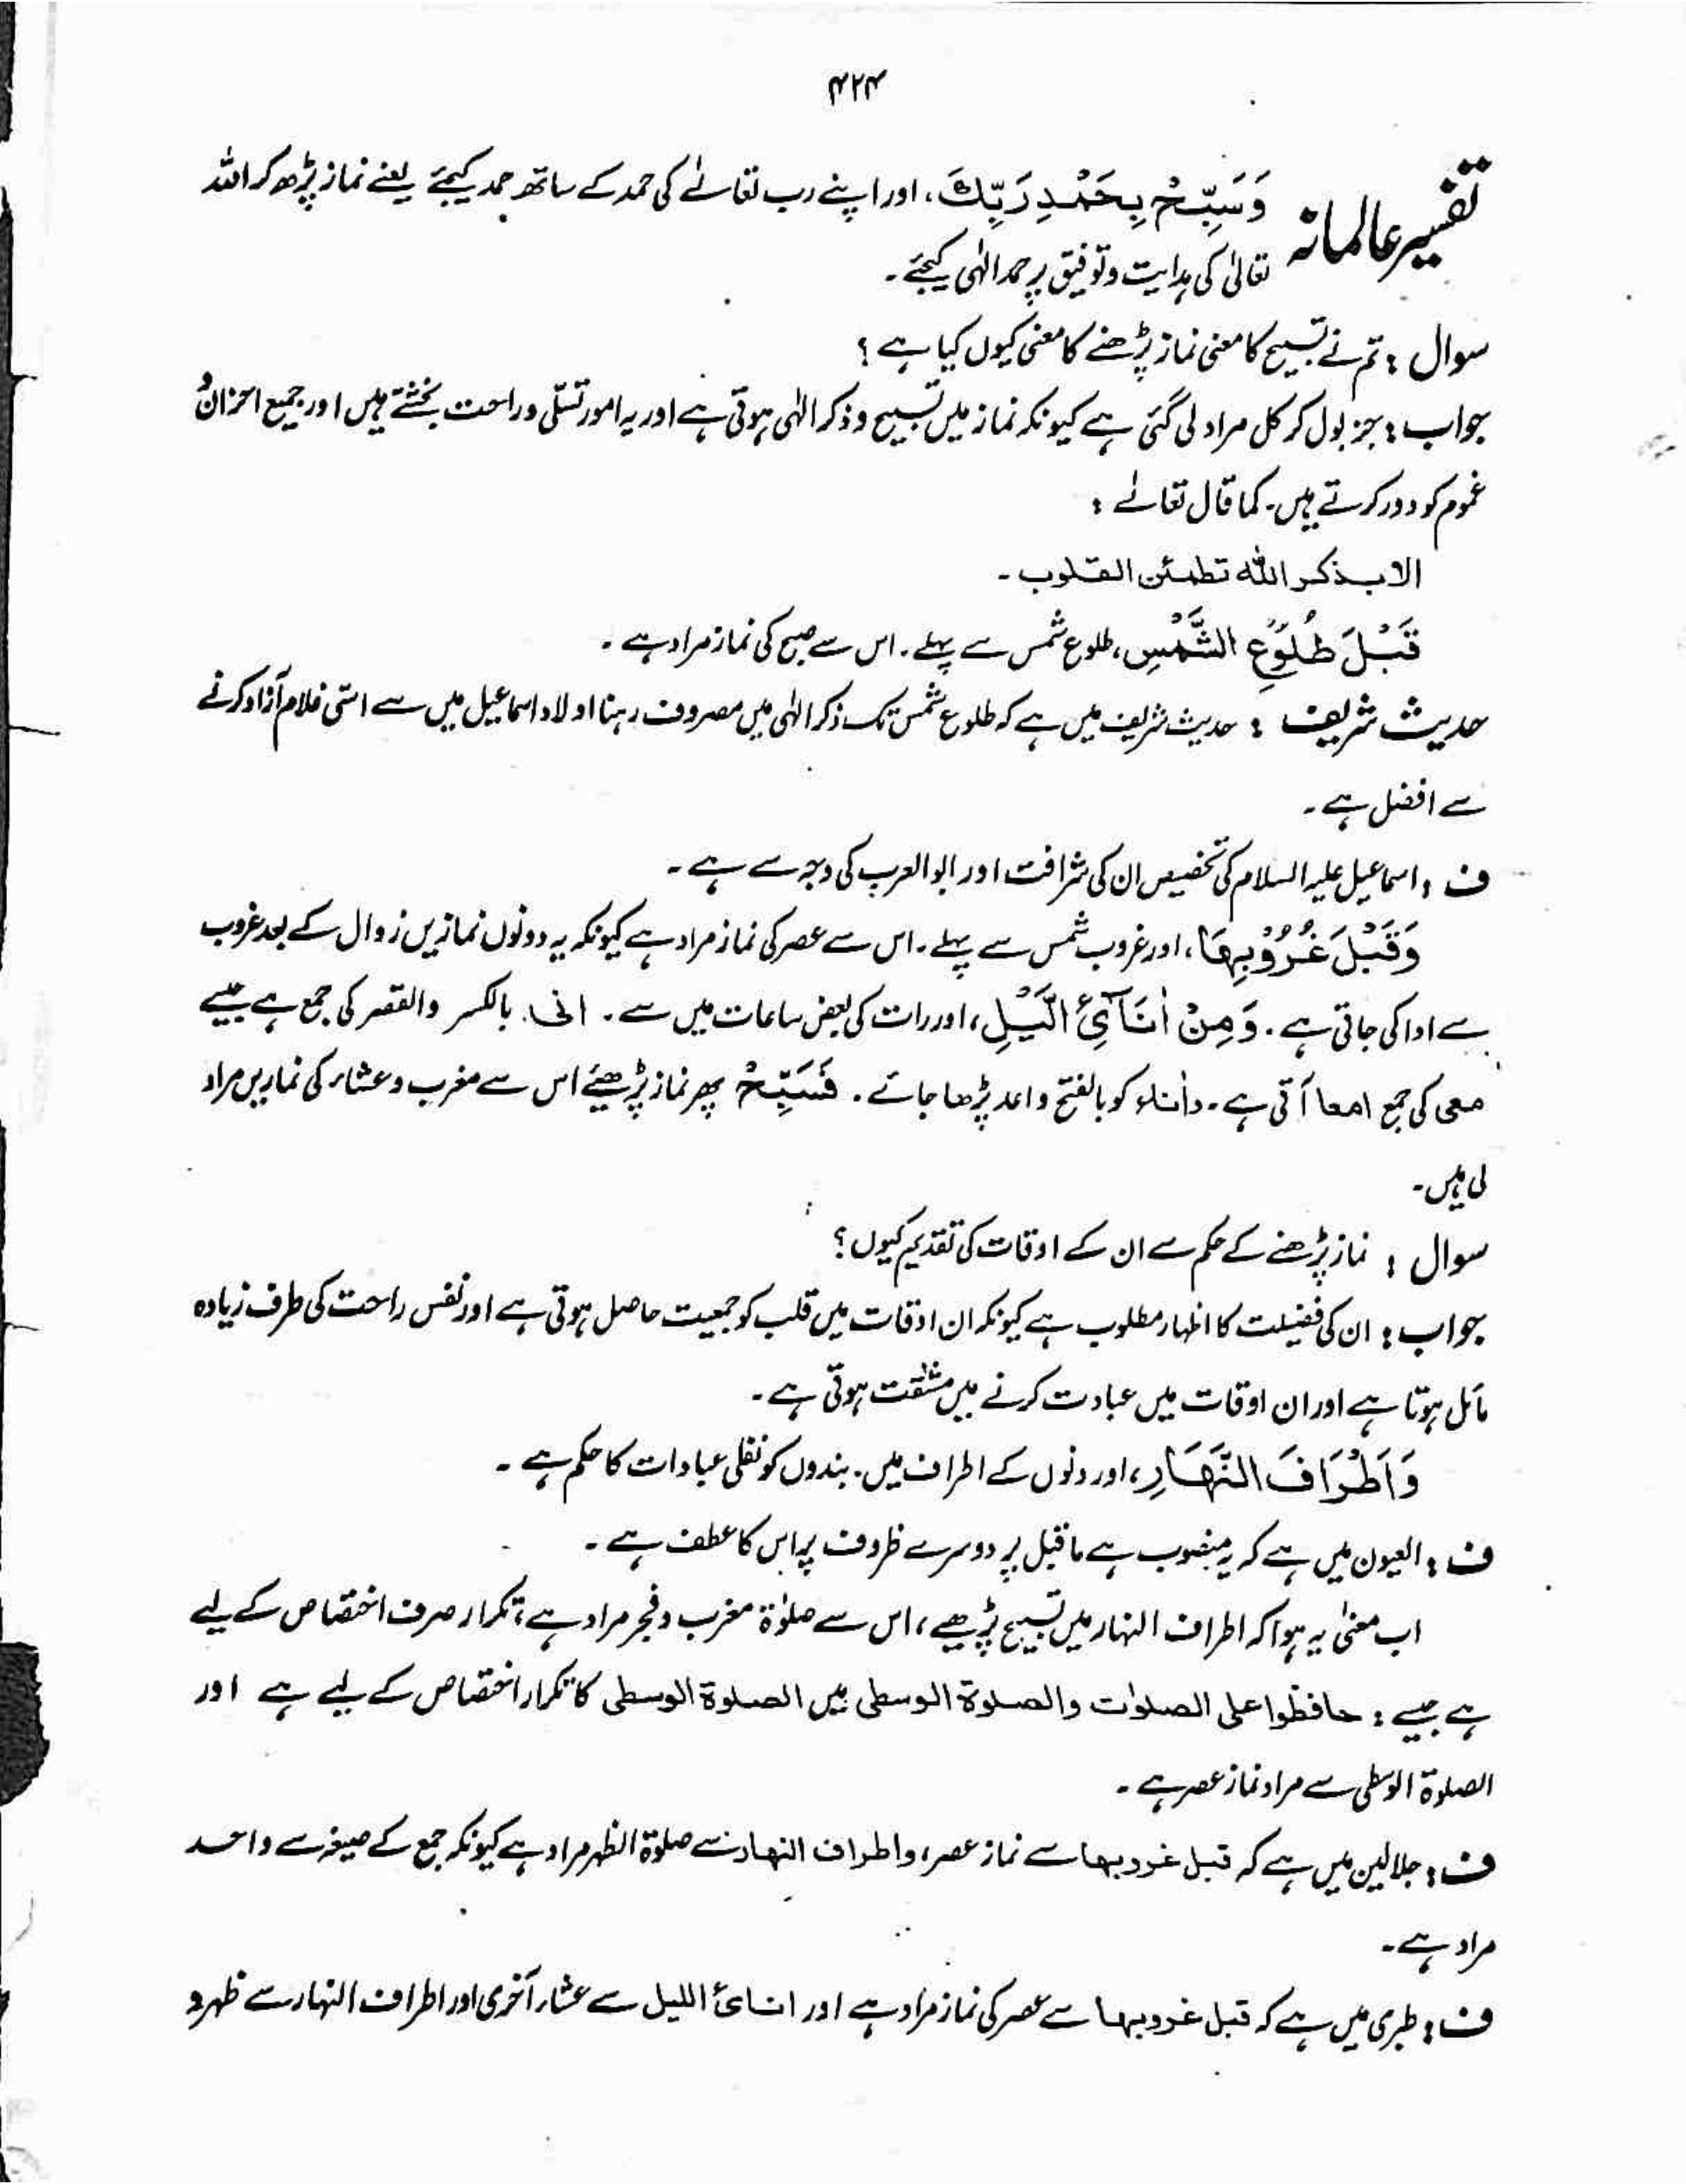 ۴۲۴
تفسیر عالمانہ وَسَبِّحْ بِحَمْدِ رَبِّكَ، اور اپنے رب تعالےٰ کی حمد کے ساتھ حمد کیجئے یعنے نماز پڑھ کر اللہ
تعالیٰ کی ہدایت و توفیق پر حمد الٰہی کیجئے۔
سوال : تم نے تسبیح کا معنی نماز پڑھنے کا معنی کیوں کیا ہے ؟
جواب : جز بول کر کل مراد لی گئی ہے کیونکہ نماز میں تسبیح و ذکر الٰہی ہوتی ہے اور یہ امور تسلّی و راحت بخشتے ہیں اور جمیع احزان و
غموم کو دور کرتے ہیں۔ کما قال تعالےٰ :
الا بذکر اللہ تطمئن القلوب۔
قَبْلَ طُلُوْعِ الشَّمْسِ، طلوع شمس سے پہلے۔ اس سے صبح کی نماز مراد ہے۔
حدیث شریف : حدیث شریف میں ہے کہ طلوع شمس تک ذکر الٰہی میں مصروف رہنا اولاد اسماعیل میں سے اسّی غلام آزاد کرنے
سے افضل ہے۔
ف : اسماعیل علیہ السلام کی تخصیص ان کی شرافت اور ابوالعرب کی وجہ سے ہے۔
وَقَبْلَ غُرُوْبِهَا، اور غروب شمس سے پہلے۔ اس سے عصر کی نماز مراد ہے کیونکہ یہ دونوں نمازیں زوال کے بعد غروب
سے ادا کی جاتی ہے۔ وَمِنْ اٰنَآئِ الَّيْلِ، اور رات کی بعض ساعات میں سے۔ انی بالکسر والقصر کی جمع ہے جیسے
معی کی جمع امعا آتی ہے۔ و أناء کو بالفتح واحد پڑھا جائے۔ فَسَبِّحْ پھر نماز پڑھیئے اس سے مغرب و عشاء کی نمازیں مراد
لی ہیں۔
سوال : نماز پڑھنے کے حکم سے ان کے اوقات کی تقدیم کیوں؟
جواب : ان کی فضیلت کا اظہار مطلوب ہے کیونکہ ان اوقات میں قلب کو جمعیت حاصل ہوتی ہے اور نفس راحت کی طرف زیادہ
مائل ہوتا ہے اور ان اوقات میں عبادت کرنے میں مشقت ہوتی ہے۔
وَاَطْرَافَ النَّهَارِ، اور دنوں کے اطراف میں۔ بندوں کو نفلی عبادات کا حکم ہے۔
ف : العیون میں ہے کہ یہ منصوب ہے ماقبل پر دوسرے ظروف پر اس کا عطف ہے۔
اب معنیٰ یہ ہوا کہ اطراف النہار میں تسبیح پڑھیے، اس سے صلوٰۃ مغرب و فجر مراد ہے، تکرار صرف اختصاص کے لیے
ہے جیسے : حافظوا علی الصلوٰت والصلوۃ الوسطی میں الصلوۃ الوسطی کا تکرار اختصاص کے لیے ہے اور
الصلوۃ الوسطی سے مراد نماز عصر ہے۔
ف : جلالین میں ہے کہ قبل غروبھا سے نماز عصر، واطراف النھار سے صلوۃ الظہر مراد ہے کیونکہ جمع کے صیغہ سے واحد
مراد ہے۔
ف : طبری میں ہے کہ قبل غروبھا سے عصر کی نماز مراد ہے اور اناٸ اللیل سے عشاء آخری اور اطراف النہار سے ظہر و